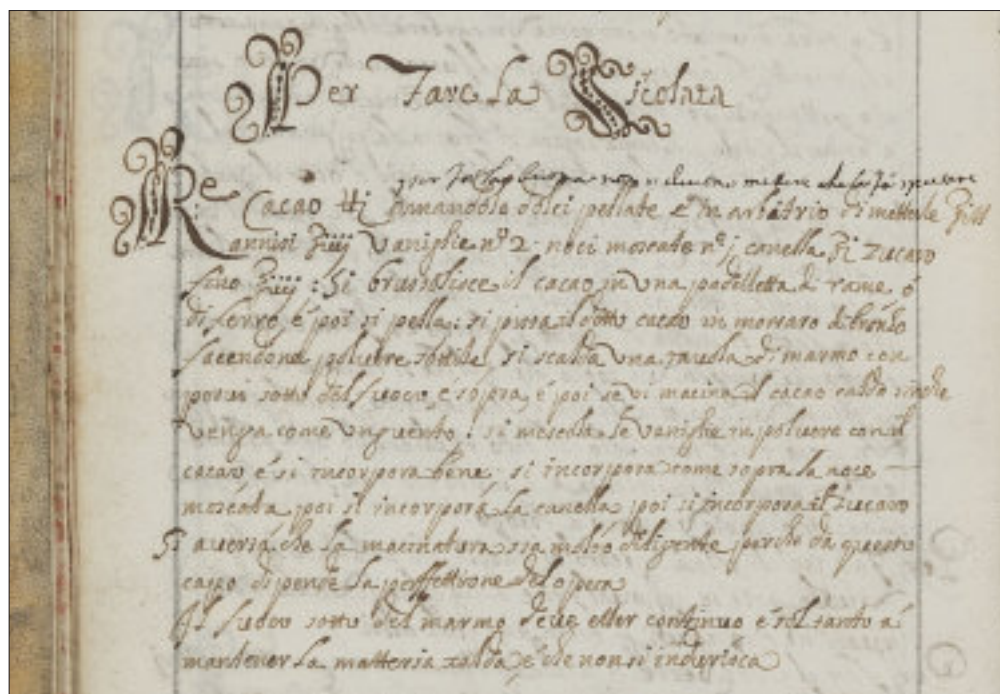 Per Fare la Cicolata
non si devono mettere che la fà
Re Cacao amandole dolci pellate è in arbitrio di metterle
annisi vaniglie nº 2 noci moscate nº j canella zucaro
fino Si brustolisce il cacao in una padelletta di rame ó
di ferro, é poi si pella: si pista il detto cacao in mortaro di bronzo
facendone polvere sottile si scalda una tavola di marmo con
porvi sotto del fuoco, é sopra, é poi se vi macina il cacao caldo sinche
venga come unguento: si mescola le vaniglie in polvere con il
cacao, é si incorpora bene, si incorpora come sopra la noce
moscata poi si incorpora la canella poi si incorpora il zucaro
Si averta che la macinatura sia molto diligente perche da questo
capo dipende la perfettione del opera
Il fuoco sotto del marmo deve esser continuo é sol tanto á
mantener la matteria calda, é che non si indurisca